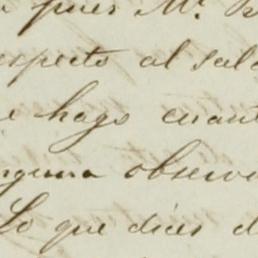 pues Mr. B
especto al sald
e hago cuant
nguna observa
Lo que dices d